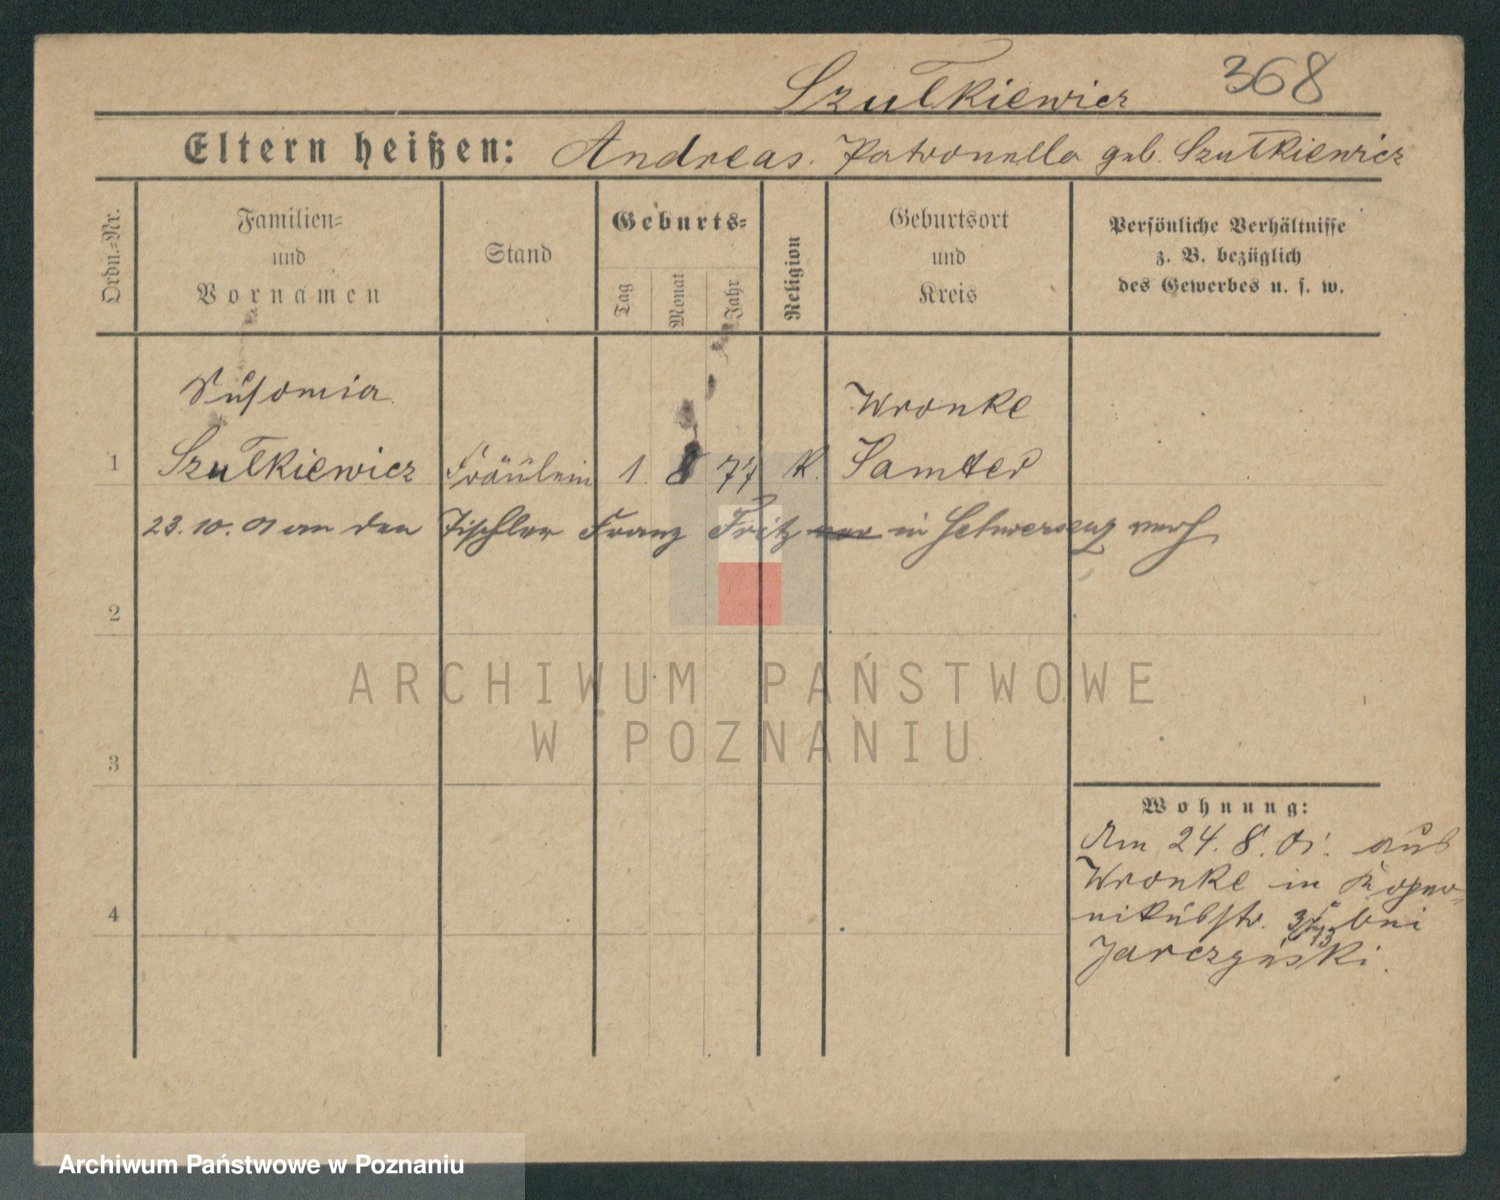 Szułkiewicz 368
Eltern heißen: Andreas. Patronella geb. Szułkiewicz
Ordn.-Nr.
Familien-
und
Vornamen
Stand
Geburts-
Tag
Monat
Jahr
Religion
Geburtsort
und
Kreis
Persönliche Verhältnisse
z. B. bezüglich
des Gewerbes u. s. w.
Wronke
1 Szułkiewicz Fräulein 1 8 77 K. Samter
23. 10. 01 an den Tischler Franz Fritz in Schwersenz verh
2
3
4
Wohnung:
Am 24. 8. 01. aus
Wronke in Koper-
nikusstr. bei
Jarczyński.
ARCHIWUM PAŃSTWOWE
W POZNANIU
Archiwum Państwowe w Poznaniu